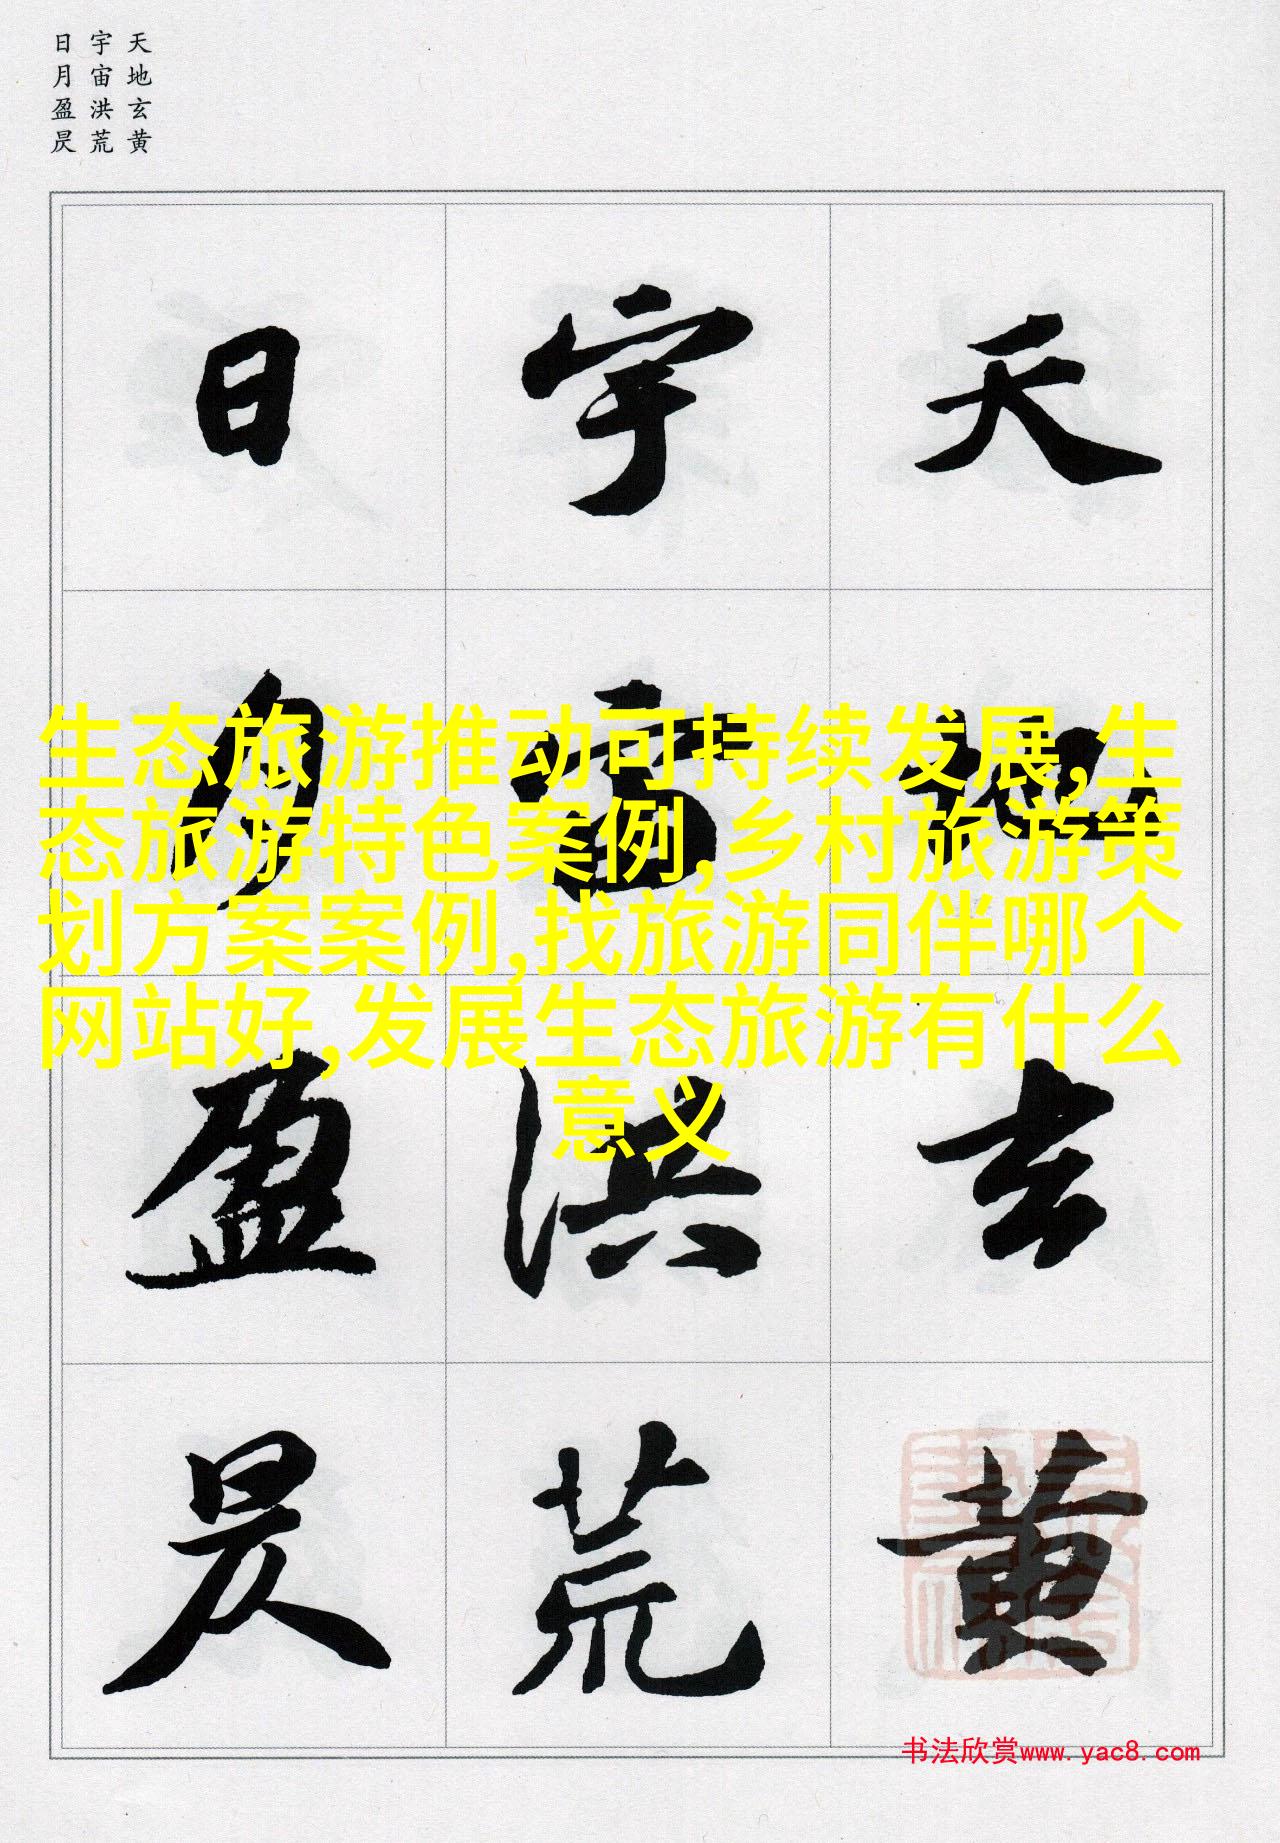 天地玄黄
宇宙洪荒
日月盈昃
天地玄黄
宇宙洪荒
日月盈昃
生态旅游推动可持续发展,生
态旅游特色案例,乡村旅游策
划方案案例,找旅游同伴哪个
网站好,发展生态旅游有什么
意义
书法欣赏www.yac8.com